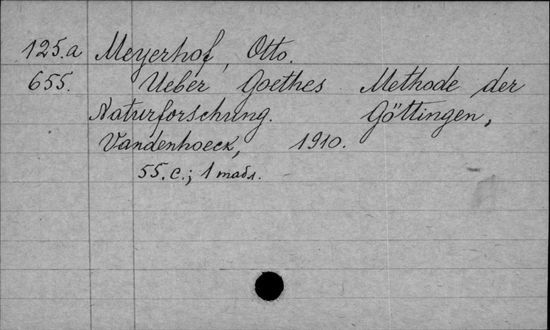 125.a Meyerhof, Otto.
655. Ueber Goethes Methode der
Naturforschung. Göttingen,
Vandenhoeck, 1910.
55. c.; 1 табл.